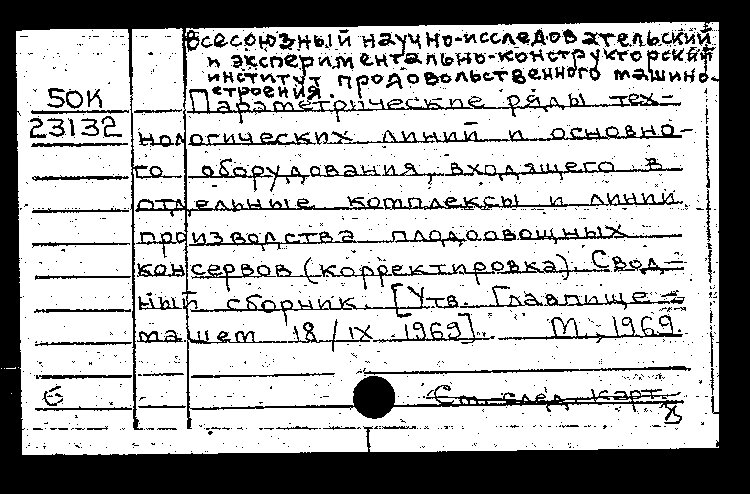 Всесоюзный научно-исследовательский
и экспериментально-конструкторский
институт продовольственного машино-
строения.
50К
Параметрические ряды тех-
23132
нологических линий и основно-
го оборудования, входящего в
отдельные комплексы и линии
производства плодоовощных
консервов (корректировка). Свод-
ный сборник. [Утв. Главпище-
машем 18/IX 1969]. М., 1969.
б См. след. карт.